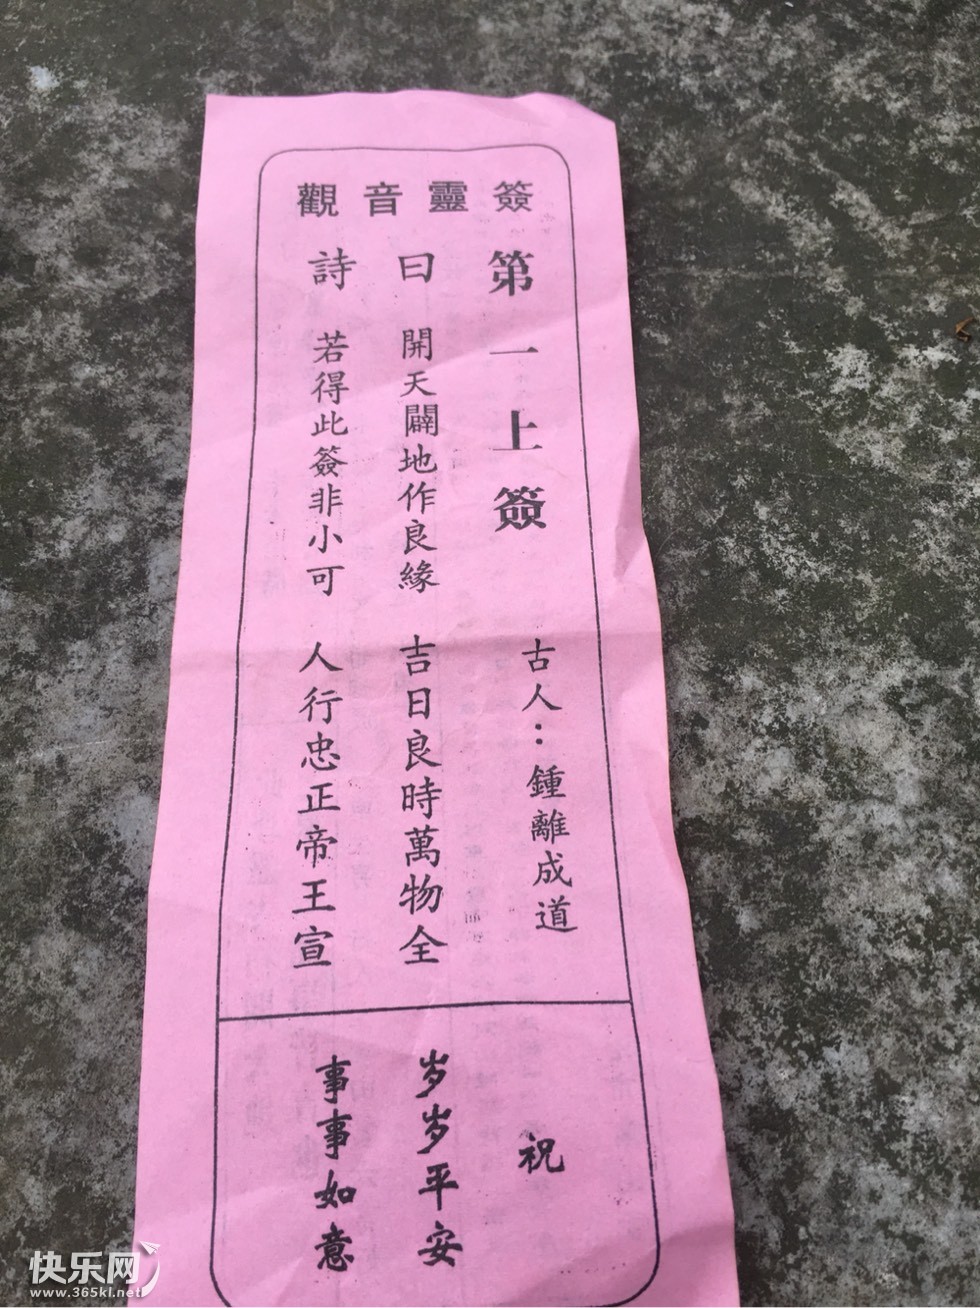 觀音靈簽
第一上簽
古人：鍾離成道
詩曰
開天闢地作良緣
吉日良時萬物全
若得此簽非小可
人行忠正帝王宣
祝
岁岁平安
事事如意
快乐网
www.365kl.net